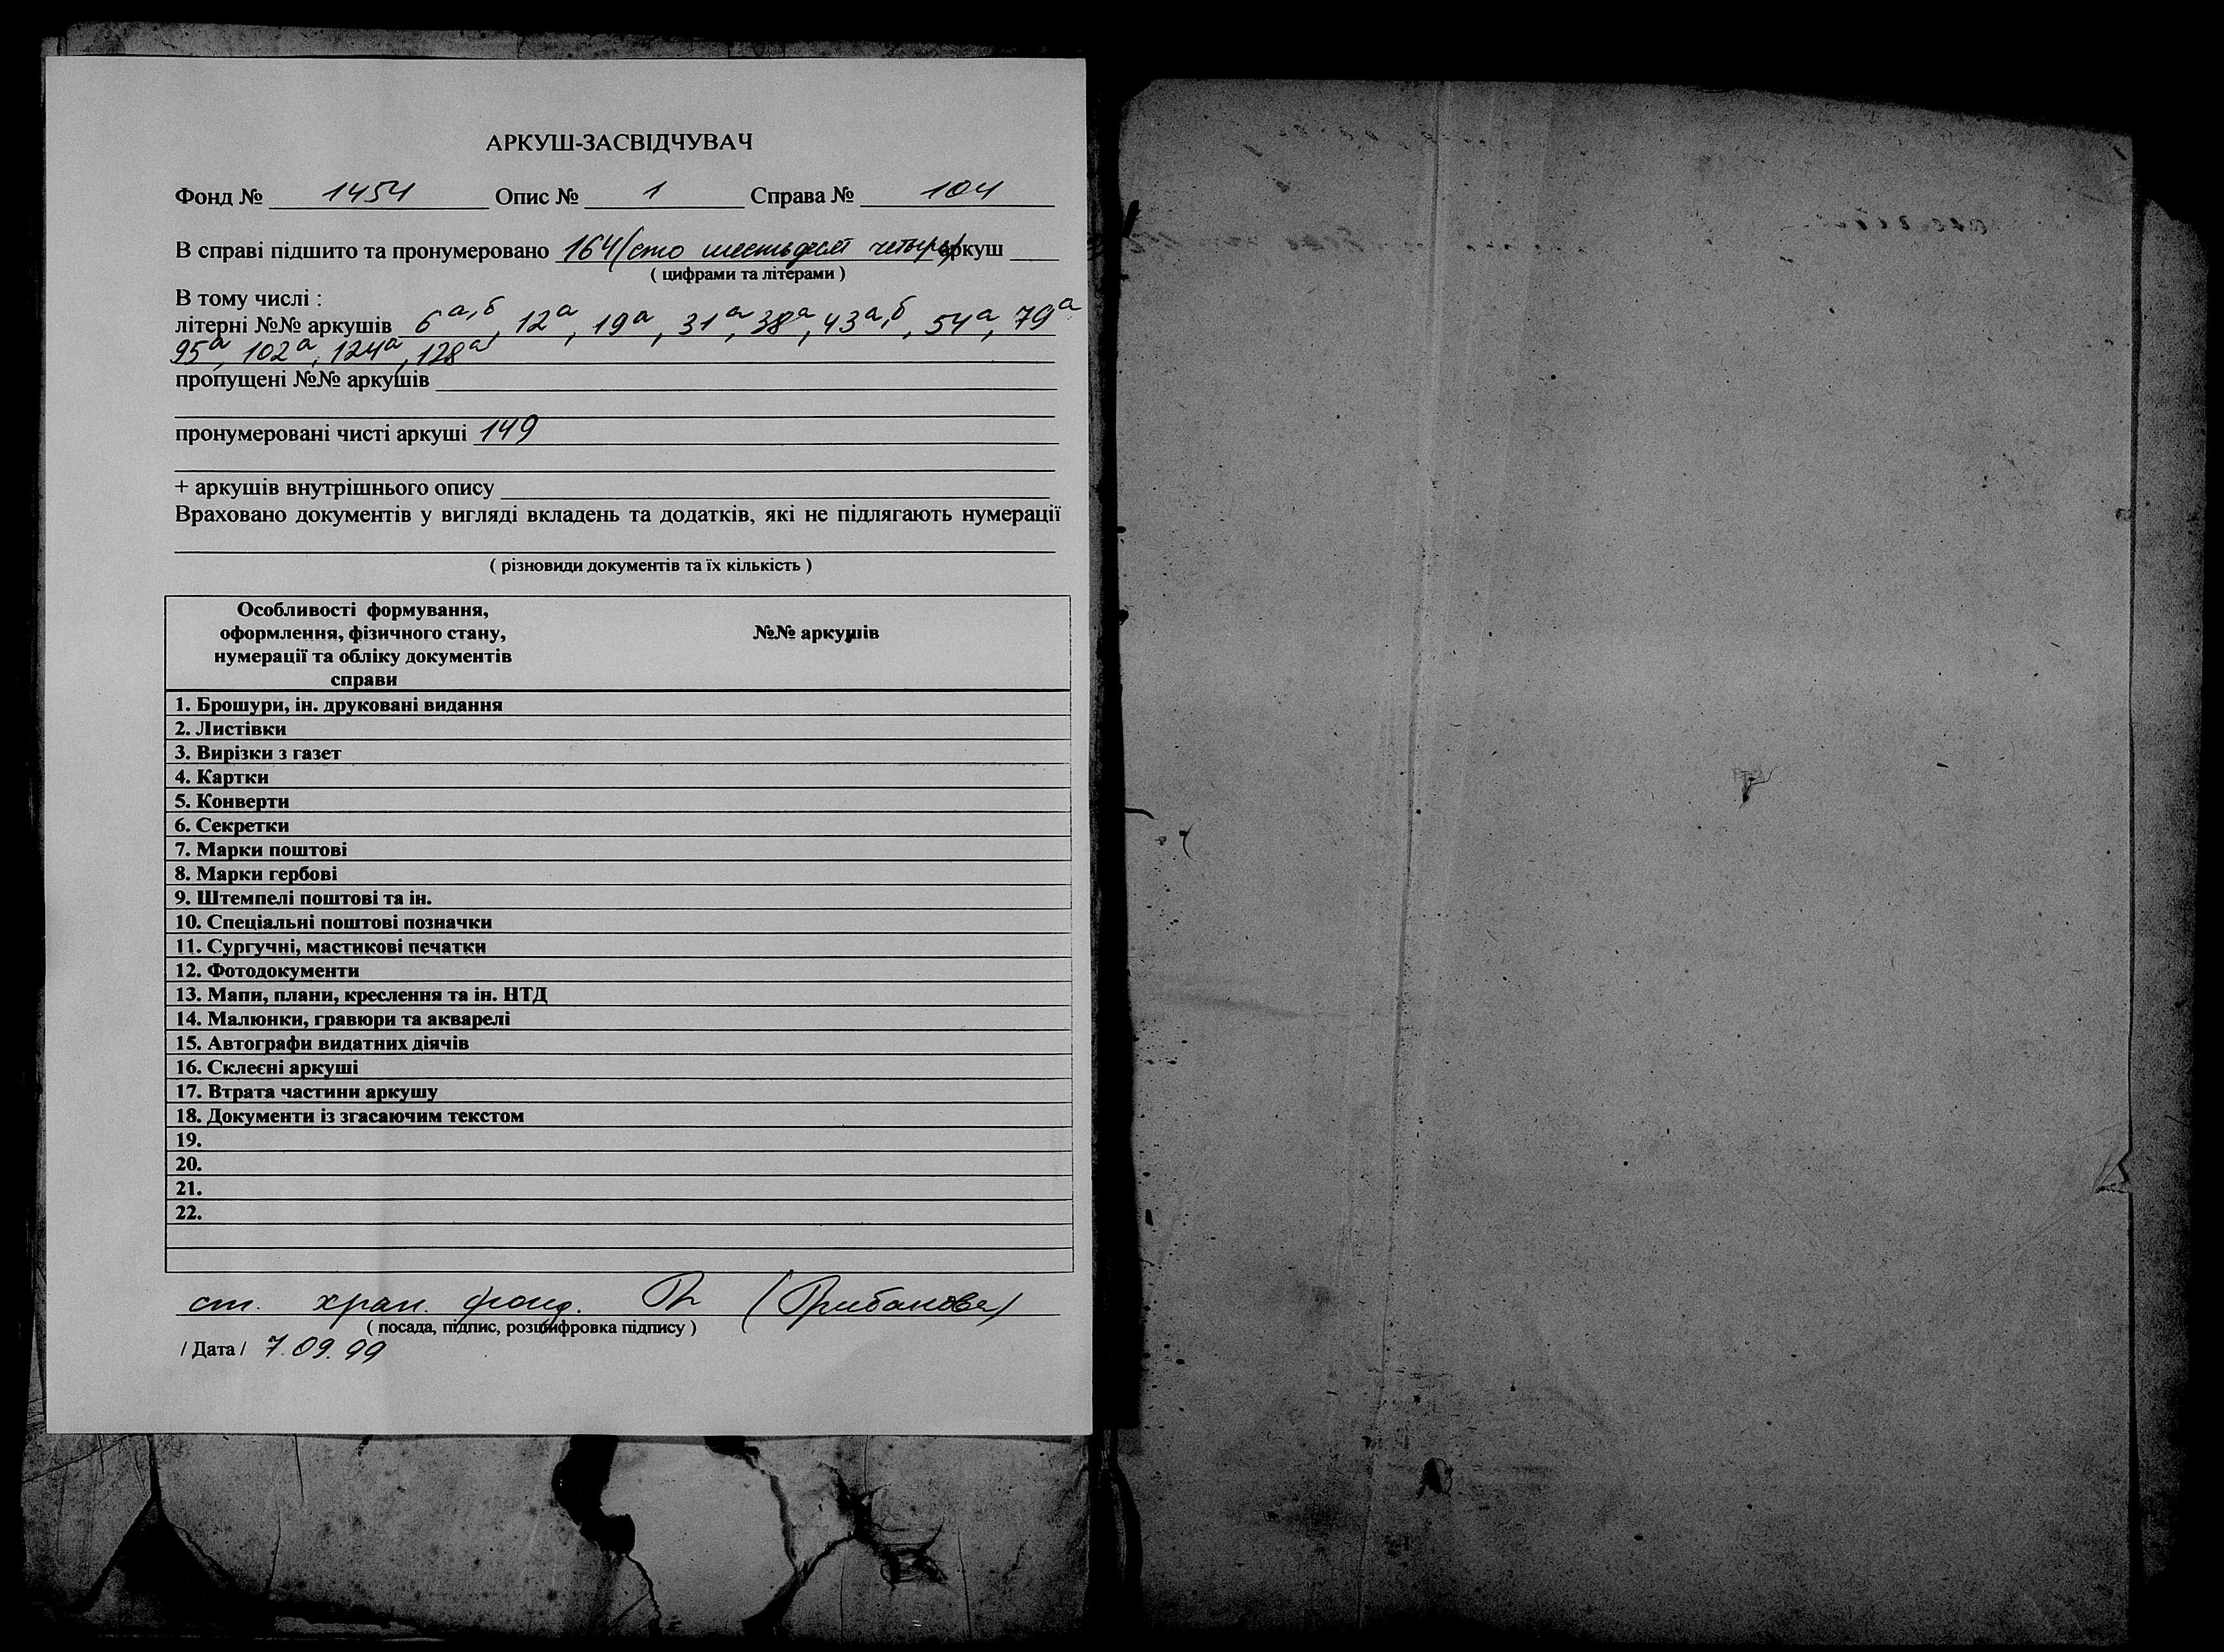 АРКУШ-ЗАСВІДЧУВАЧ
Фонд № 1454 Опис № 1 Справа № 104
В справі підшито та пронумеровано 164 (сто шестьдесят четыре) аркуш
( цифрами та літерами )
В тому числі :
літерні №№ аркушів 6а,б, 12а, 19а, 31а, 38а, 43а,б, 54а, 79а
95а, 102а, 124а, 128а
пропущені №№ аркушів
пронумеровані чисті аркуші 149
+ аркушів внутрішнього опису
Враховано документів у вигляді вкладень та додатків, які не підлягають нумерації
( різновиди документів та їх кількість )
Особливості формування,
оформлення, фізичного стану, №№ аркушів
нумерації та обліку документів
справи
1. Брошури, ін. друковані видання
2. Листівки
3. Вирізки з газет
4. Картки
5. Конверти
6. Секретки
7. Марки поштові
8. Марки гербові
9. Штемпелі поштові та ін.
10. Спеціальні поштові позначки
11. Сургучні, мастикові печатки
12. Фотодокументи
13. Мапи, плани, креслення та ін. НТД
14. Малюнки, гравюри та акварелі
15. Автографи видатних діячів
16. Склеєні аркуші
17. Втрата частини аркушу
18. Документи із згасаючим текстом
19.
20.
21.
22.
ст. хран. фонд.
( посада, підпис, розшифровка підпису )
/ Дата / 7.09.99